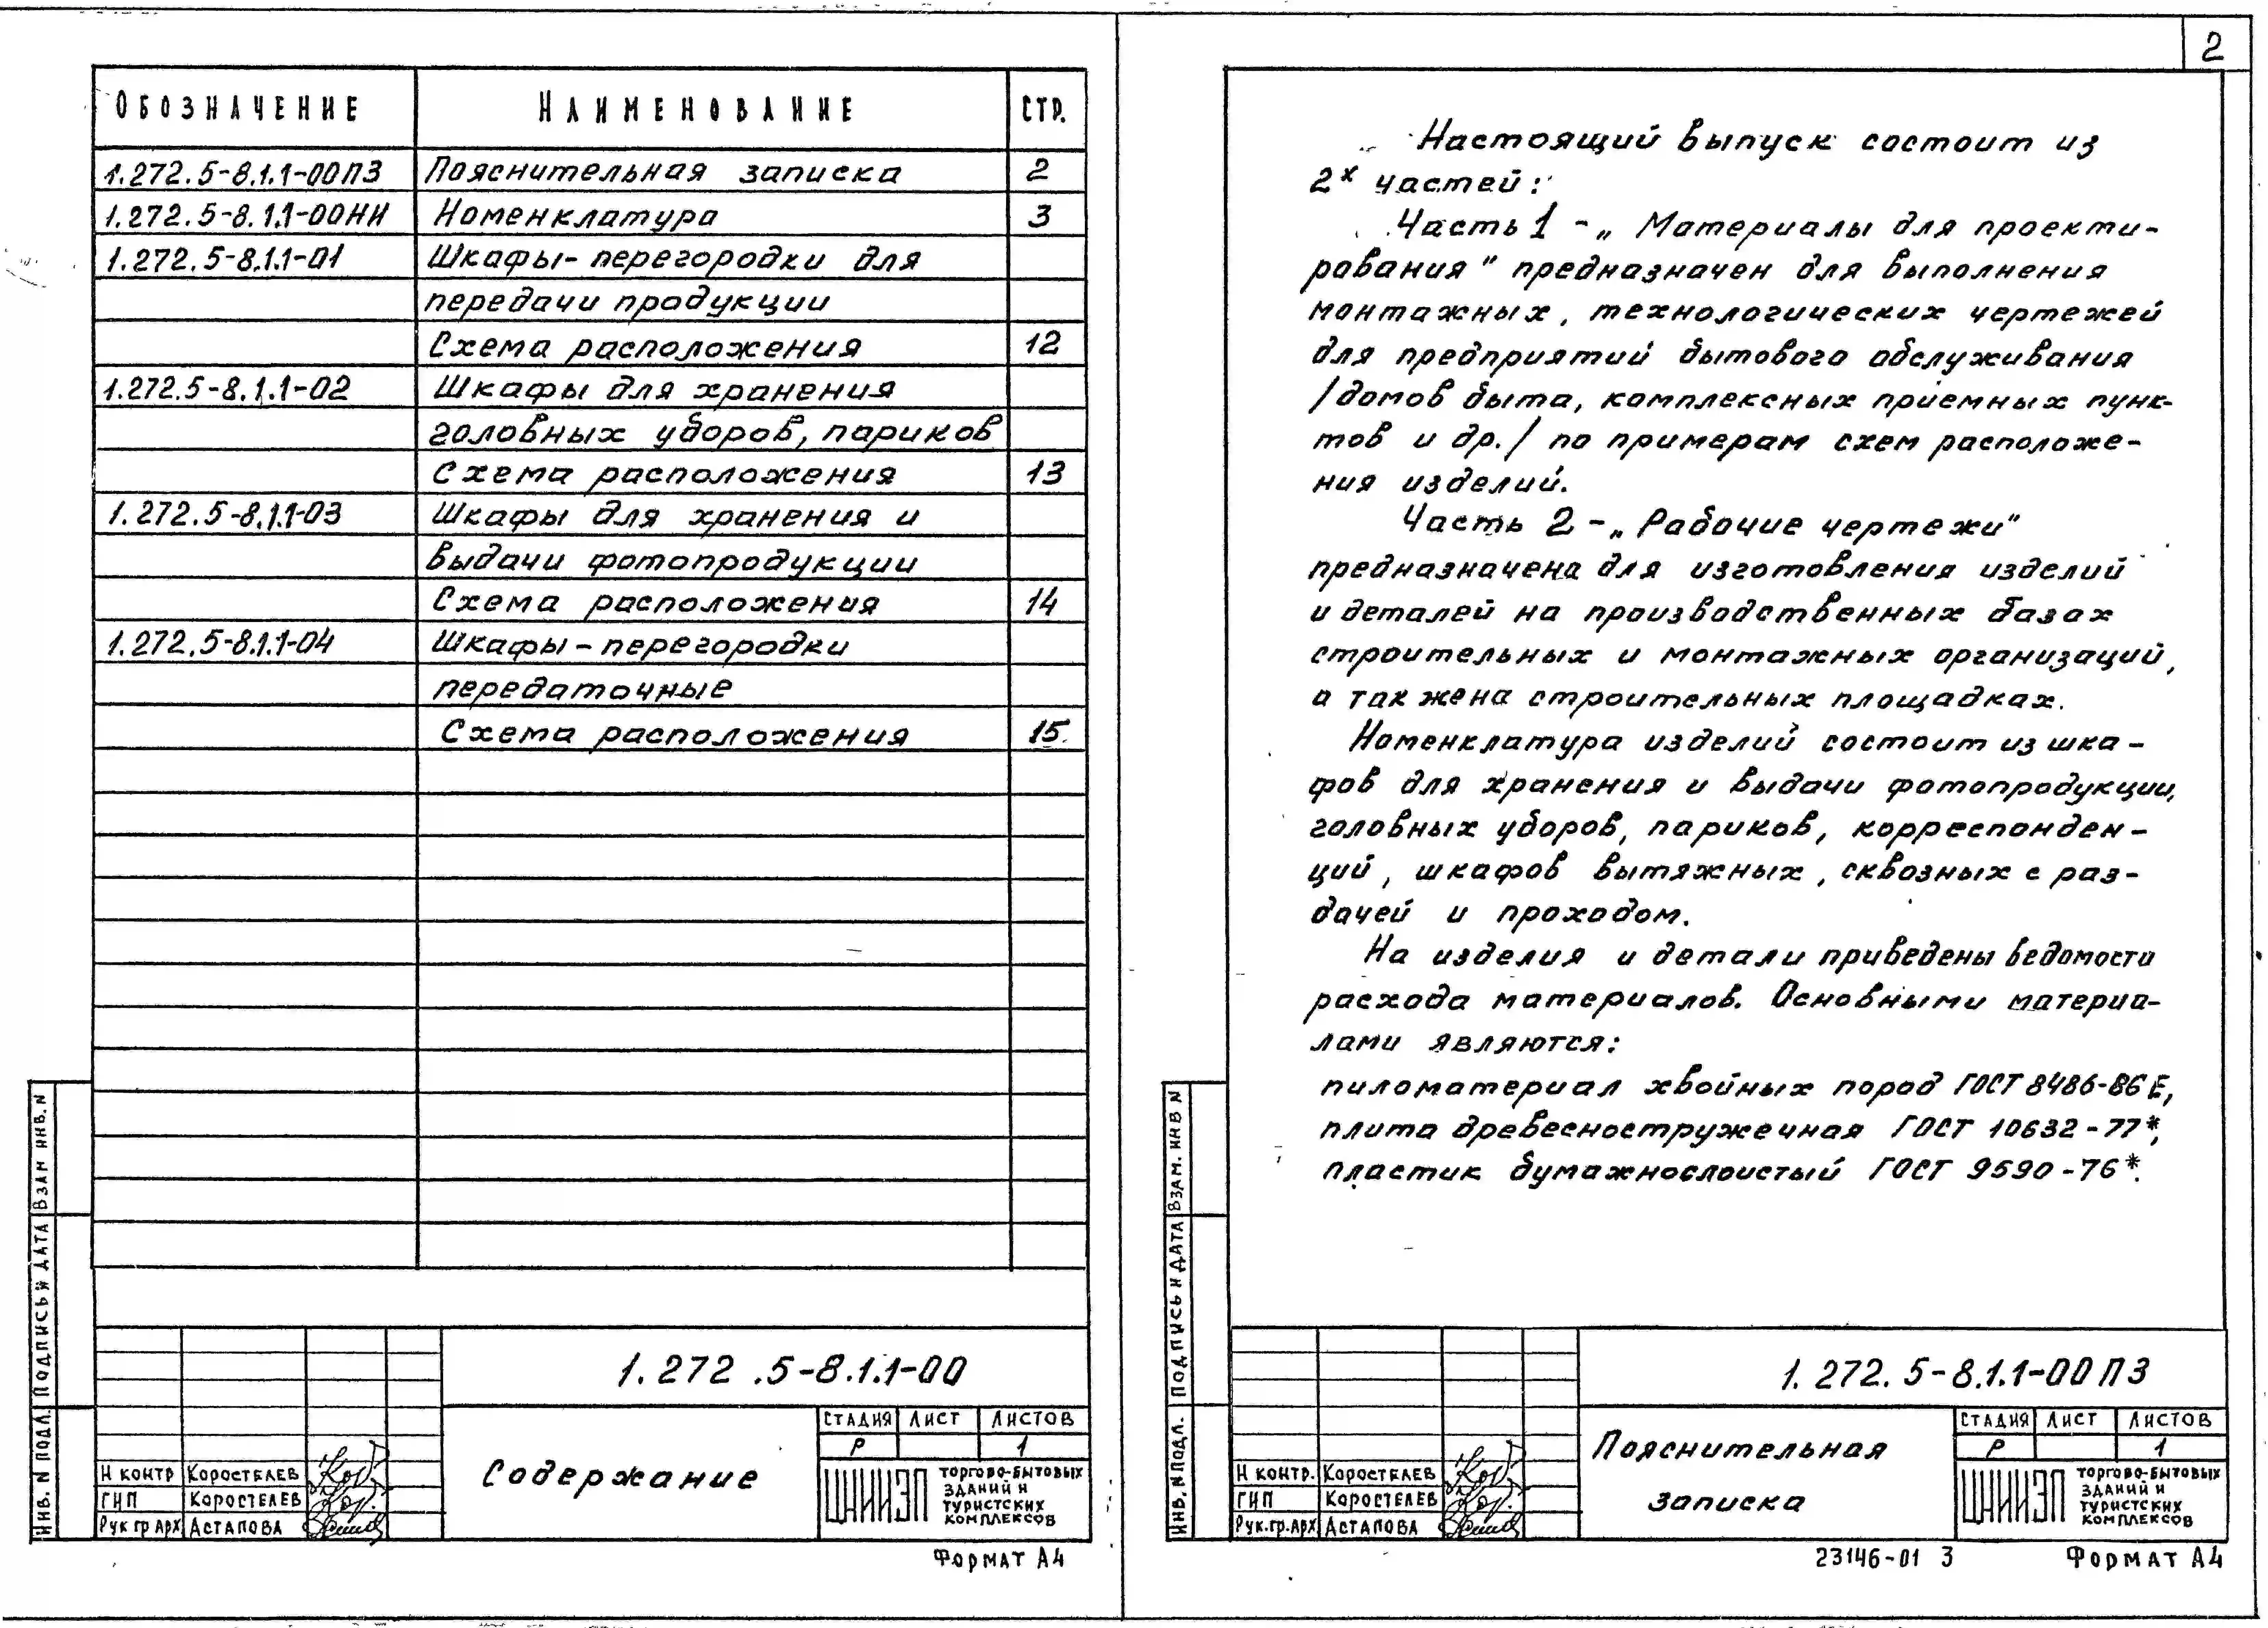 Обозначение Наименование стр.
1.272.5-8.1.1-00ПЗ Пояснительная записка 2
1.272.5-8.1.1-00НИ Номенклатура 3
1.272.5-8.1.1-01 Шкафы-перегородки для
передачи продукции
Схема расположения 12
1.272.5-8.1.1-02 Шкафы для хранения
головных уборов, париков
Схема расположения 13
1.272.5-8.1.1-03 Шкафы для хранения и
выдачи фотопродукции
Схема расположения 14
1.272.5-8.1.1-04 Шкафы-перегородки
передаточные
Схема расположения 15
Взам инв. N
Подпись и дата
Инв. N подл.
1.272.5-8.1.1-00
Содержание
Стадия Лист Листов
Р 1
Н контр Коростелев
ГИП Коростелев
Рук гр Арх Астапова
ЦНИИЭП
торгово-бытовых
зданий и
туристских
комплексов
Формат А4
2
Настоящий выпуск состоит из
2х частей:
Часть 1 - „Материалы для проекти-
рования" предназначен для выполнения
монтажных, технологических чертежей
для предприятий бытового обслуживания
/домов быта, комплексных приемных пунк-
тов и др./ по примерам схем расположе-
ния изделий.
Часть 2 - „Рабочие чертежи"
предназначена для изготовления изделий
и деталей на производственных базах
строительных и монтажных организаций,
а также на строительных площадках.
Номенклатура изделий состоит из шка-
фов для хранения и выдачи фотопродукции,
головных уборов, париков, корреспонден-
ций, шкафов вытяжных, сквозных с раз-
дачей и проходом.
На изделия и детали приведены ведомости
расхода материалов. Основными материа-
лами являются:
пиломатериал хвойных пород ГОСТ 8486-86Е,
плита древесностружечная ГОСТ 10632-77*,
пластик бумажнослоистый ГОСТ 9590-76*.
Взам. инв N
Подпись и дата
Инв. N подл.
1.272.5-8.1.1-00ПЗ
Пояснительная
записка
Стадия Лист Листов
Р 1
Н контр. Коростелев
ГИП Коростелев
Рук.гр.Арх Астапова
ЦНИИЭП
торгово-бытовых
зданий и
туристских
комплексов
23146-01 3 Формат А4